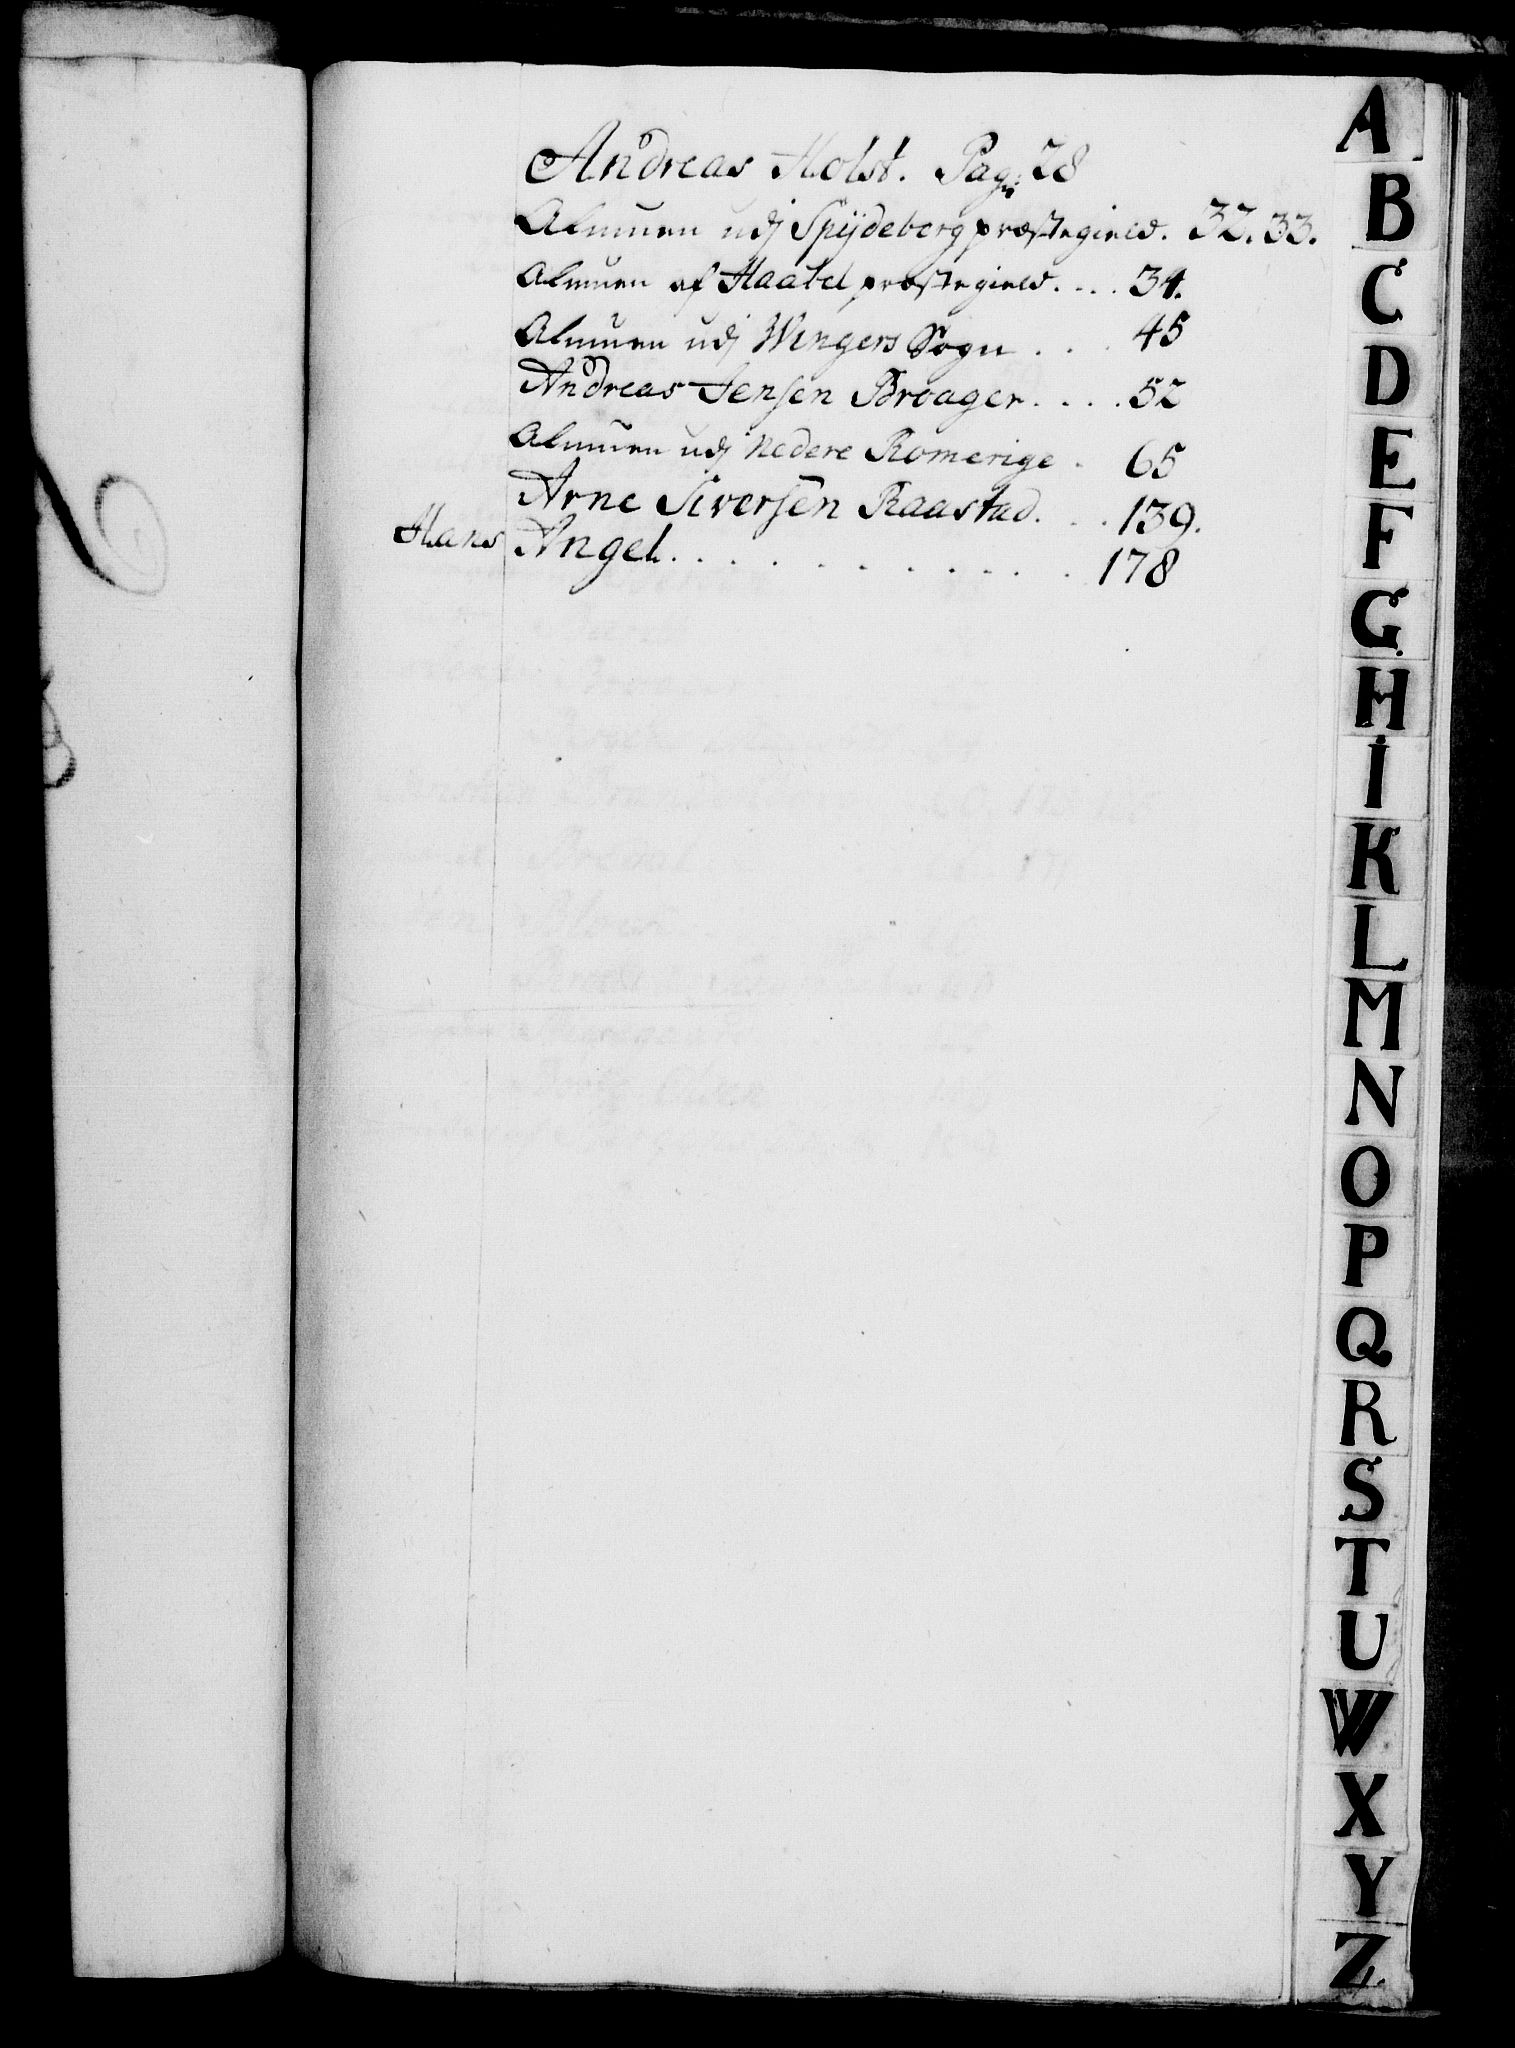 Andreas Holst. Pag: 28
Almuen udj Spÿdeberg præstegield. 32. 33.
Almuen af Haabel præstegield. . . . 34.
Almuen udj Wingers Sogn . . . 45
Andreas Jensen Broager. . . . . 52
Almuen udj Nedere Romerige . 65
Arne Siversen Raastad. . . . 139.
Hans Angel. . . . . . . . . . . 178
A
B
C
D
E
F
G
H
I
K
L
M
N
O
P
Q
R
S
T
U
W
X
Y
Z